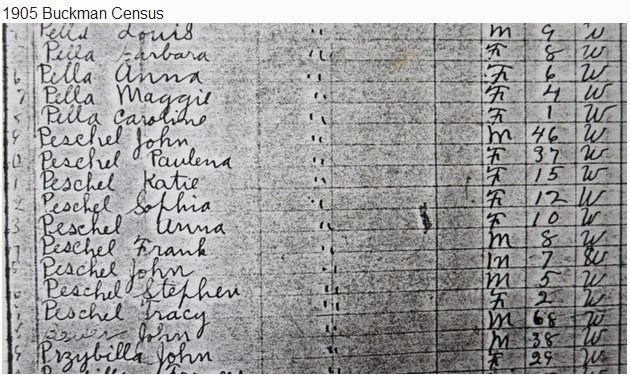 1905 Buckman Census
Pella Louis " M 9 W
Pella Barbara " F 8 W
Pella Anna " F 6 W
Pella Maggie " F 4 W
Pella Caroline " F 1 W
Peschel John " M 46 W
Peschel Paulena " F 37 W
Peschel Katie " F 15 W
Peschel Sophia " F 12 W
Peschel Anna " F 10 W
Peschel Frank " M 8 W
Peschel John " M 7 W
Peschel Stephen " M 5 W
Peschel Tracy " F 2 W
John " M 68 W
Przybilla John " M 38 W
F 29 W